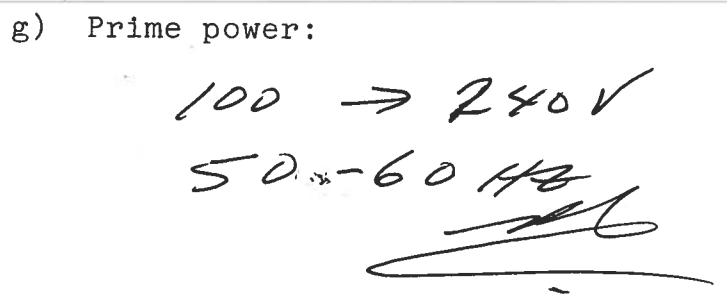 g) Prime power:
100 → 240 V
50 - 60 Hz